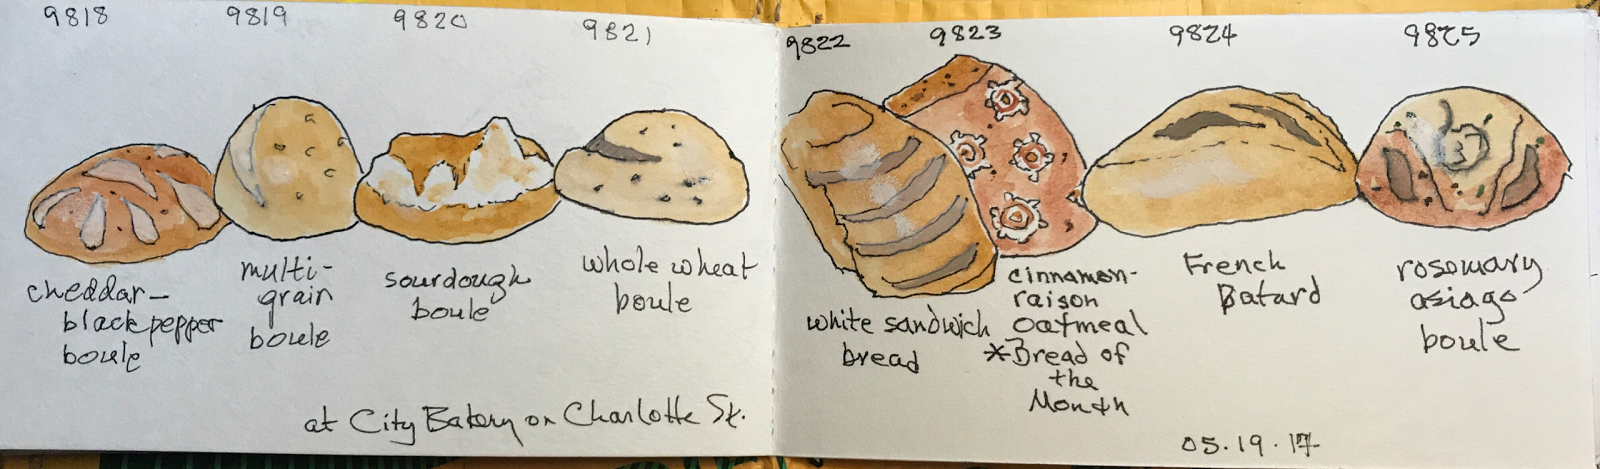 9818
9819
9820
9821
cheddar-
black pepper
boule
multi-
grain
boule
sourdough
boule
whole wheat
boule
at City Bakery on Charlotte St.
9822
9823
9824
9825
white sandwich
bread
cinnamon-
raison
oatmeal
*Bread of
the
Month
French
Batard
rosemary
asiago
boule
05.19.17